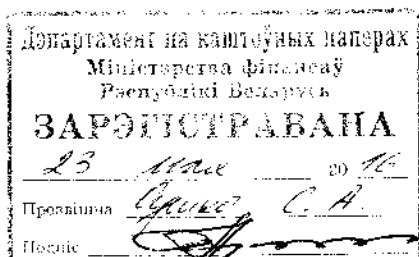 Дэпартамент па каштоўных паперах
Міністэрства фінансаў
Рэспублікі Беларусь
ЗАРЭГІСТРАВАНА
23 мая 2016
Прозвішча С. А.
Подпіс